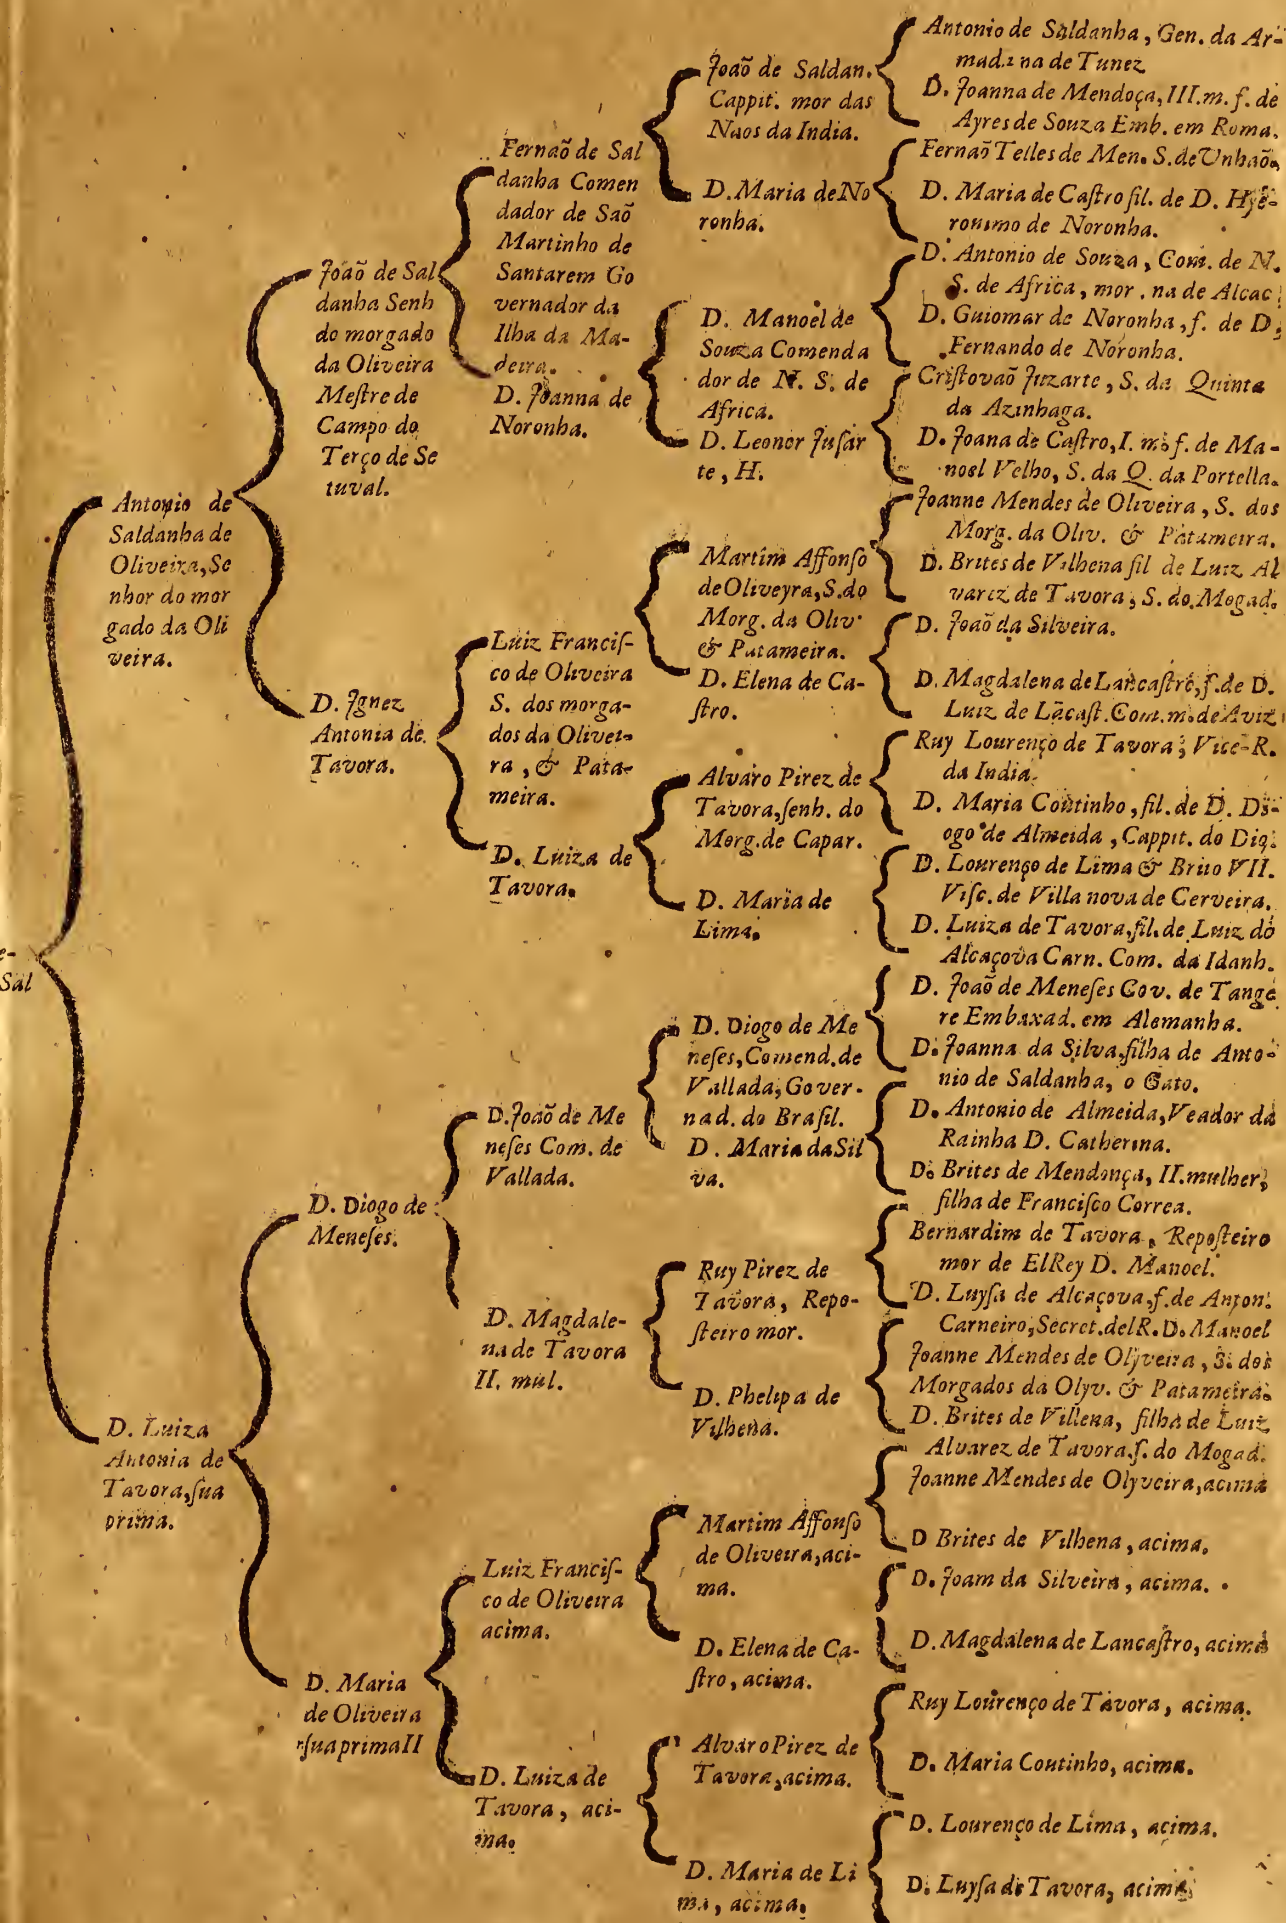 e-
Sal
Antonio de
Saldanha de
Oliveira, Se
nhor do mor
gado da Oli
veira.
D. Luiza
Antonia de
Tavora, ſua
prima.
Joaõ de Sal
danha Senh
do morgado
da Oliveira
Meſtre de
Campo do
Terço de Se
tuval.
D. Ignez
Antonia de
Tavora.
D. Diogo de
Meneſes.
D. Maria
de Oliveira
ſua prima II
Fernaõ de Sal
danha Comen
dador de Saõ
Martinho de
Santarem Go
vernador da
Ilha da Ma-
deira.
D. Joanna de
Noronha.
Luiz Franciſ-
co de Oliveira
S. dos morga-
dos da Olivei-
ra, & Pata-
meira.
D. Luiza de
Tavora.
D. Joaõ de Me
neſes Com. de
Vallada.
D. Magdale-
na de Tavora
II. mul.
Luiz Franciſ-
co de Oliveira
acima.
D. Luiza de
Tavora, aci-
ma.
Joaõ de Saldan.
Cappit. mor das
Naos da India.
D. Maria de No
ronha.
D. Manoel de
Souza Comenda
dor de N. S. de
Africa.
D. Leonor Juſar
te, H.
Martim Affonſo
de Oliveyra, S. do
Morg. da Oliv
& Patameira.
D. Elena de Ca-
ſtro.
Alvaro Pirez de
Tavora, ſenh. do
Morg. de Capar.
D. Maria de
Lima.
D. Diogo de Me
neſes, Comend. de
Vallada, Gover-
nad. do Braſil.
D. Maria da Sil
va.
Ruy Pirez de
Tavora, Repo-
ſteiro mor.
D. Phelipa de
Vilhena.
Martim Affonſo
de Oliveira, aci-
ma.
D. Elena de Ca-
ſtro, acima.
Alvaro Pirez de
Tavora, acima.
D. Maria de Li
ma, acima.
Antonio de Saldanha, Gen. da Ar-
mada na de Tunez
D. Joanna de Mendoça, III. m. f. de
Ayres de Souza Emb. em Roma.
Fernaõ Telles de Men. S. de Unhaõ.
D. Maria de Caſtro fil. de D. Hye-
ronimo de Noronha.
D. Antonio de Souza, Com. de N.
S. de Africa, mor. na de Alcac
D. Guiomar de Noronha, f. de D.
Fernando de Noronha.
Criſtovaõ Juzarte, S. da Quinta
da Azinhaga.
D. Joana de Caſtro, I. m. f. de Ma-
noel Velho, S. da Q. da Portella.
Joanne Mendes de Oliveira, S. dos
Morg. da Oliv. & Patameira.
D. Brites de Vilhena fil de Luiz Al
varez de Tavora, S. do Mogad.
D. Joaõ da Silveira.
D. Magdalena de Lancaſtre, f. de D.
Luiz de Lãcaſt. Com. m. de Aviz
Ruy Lourenço de Tavora, Vice-R.
da India.
D. Maria Coutinho, fil. de D. Di-
ogo de Almeida, Cappit. do Dio.
D. Lourenço de Lima & Brito VII.
Viſc. de Villa nova de Cerveira.
D. Luiza de Tavora, fil. de Luiz do
Alcaçova Carn. Com. da Idanh.
D. Joaõ de Meneſes Gov. de Tange
re Embaxad. em Alemanha.
D. Joanna da Silva, filha de Anto-
nio de Saldanha, o Gato.
D. Antonio de Almeida, Veador da
Rainha D. Catherina.
D. Brites de Mendonça, II. mulher,
filha de Franciſco Correa.
Bernardim de Tavora, Repoſteiro
mor de ElRey D. Manoel.
D. Luyſa de Alcaçova, f. de Anton.
Carneiro, Secret. del R. D. Manoel
Joanne Mendes de Olyveira, S. dos
Morgados da Olyv. & Patameira.
D. Brites de Villena, filha de Luiz
Alvarez de Tavora, ſ. do Mogad.
Joanne Mendes de Olyveira, acima
D Brites de Vilhena, acima.
D. Joam da Silveira, acima.
D. Magdalena de Lancaſtro, acima
Ruy Lourenço de Tavora, acima.
D. Maria Coutinho, acima.
D. Lourenço de Lima, acima.
D. Luyſa de Tavora, acima